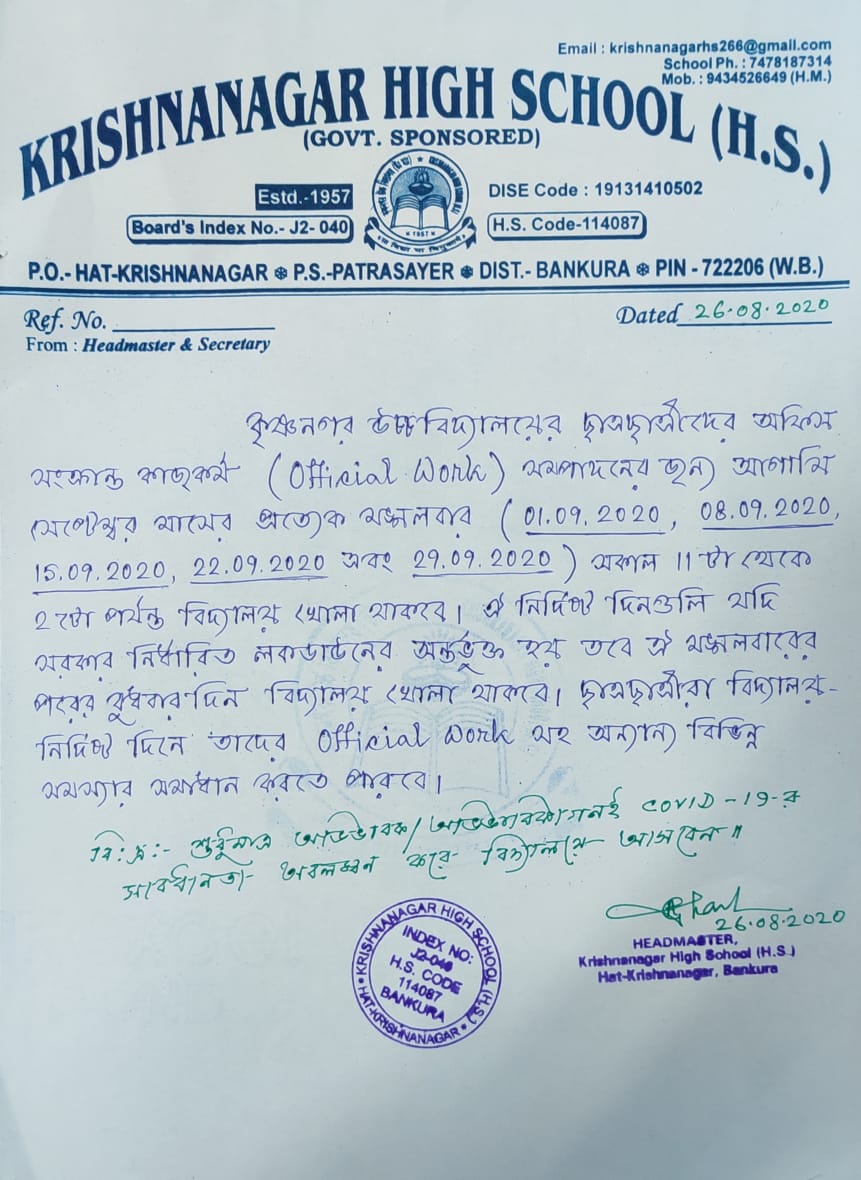 Email : krishnanagarhs266@gmail.com
School Ph. : 7478187314
Mob. : 9434526649 (H.M.)
KRISHNANAGAR HIGH SCHOOL (H.S.)
(GOVT. SPONSORED)
Estd.-1957
DISE Code : 19131410502
Board's Index No.- J2- 040
H.S. Code-114087
1957
P.O.- HAT-KRISHNANAGAR ❄ P.S.-PATRASAYER ❄ DIST.- BANKURA ❄ PIN - 722206 (W.B.)
Ref. No.
Dated 26.08.2020
From : Headmaster & Secretary
কৃষ্ণনগর উচ্চবিদ্যালয়ের ছাত্রছাত্রীদের অফিস
সংক্রান্ত কাজকর্ম (Official Work) সম্পাদনের জন্য আগামি
সেপ্টেম্বর মাসের প্রত্যেক মঙ্গলবার (01.09.2020, 08.09.2020,
15.09.2020, 22.09.2020 এবং 29.09.2020) সকাল 11 টা থেকে
2 টো পর্যন্ত বিদ্যালয় খোলা থাকবে। ঐ নির্দিষ্ট দিনগুলি যদি
সরকার নির্ধারিত লকডাউনের অর্ন্তভুক্ত হয় তবে ঐ মঙ্গলবারের
পরের বুধবার দিন বিদ্যালয় খোলা থাকবে। ছাত্রছাত্রীরা বিদ্যালয়-
নির্দিষ্ট দিনে তাদের Official Work সহ অন্যান্য বিভিন্ন
সমস্যার সমাধান করতে পারবে।
বি:দ্র:- শুধুমাত্র অভিভাবক/অভিভাবিকাগনই COVID-19-র
সাবধানতা অবলম্বন করে বিদ্যালয়ে আসবেন॥
26.08.2020
HEADMASTER,
Krishnanagar High School (H.S.)
Hat-Krishnanagar, Bankura
KRISHNANAGAR HIGH SCHOOL (H.S.)
HAT-KRISHNANAGAR
INDEX NO:
J2-040
H.S. CODE
114087
BANKURA